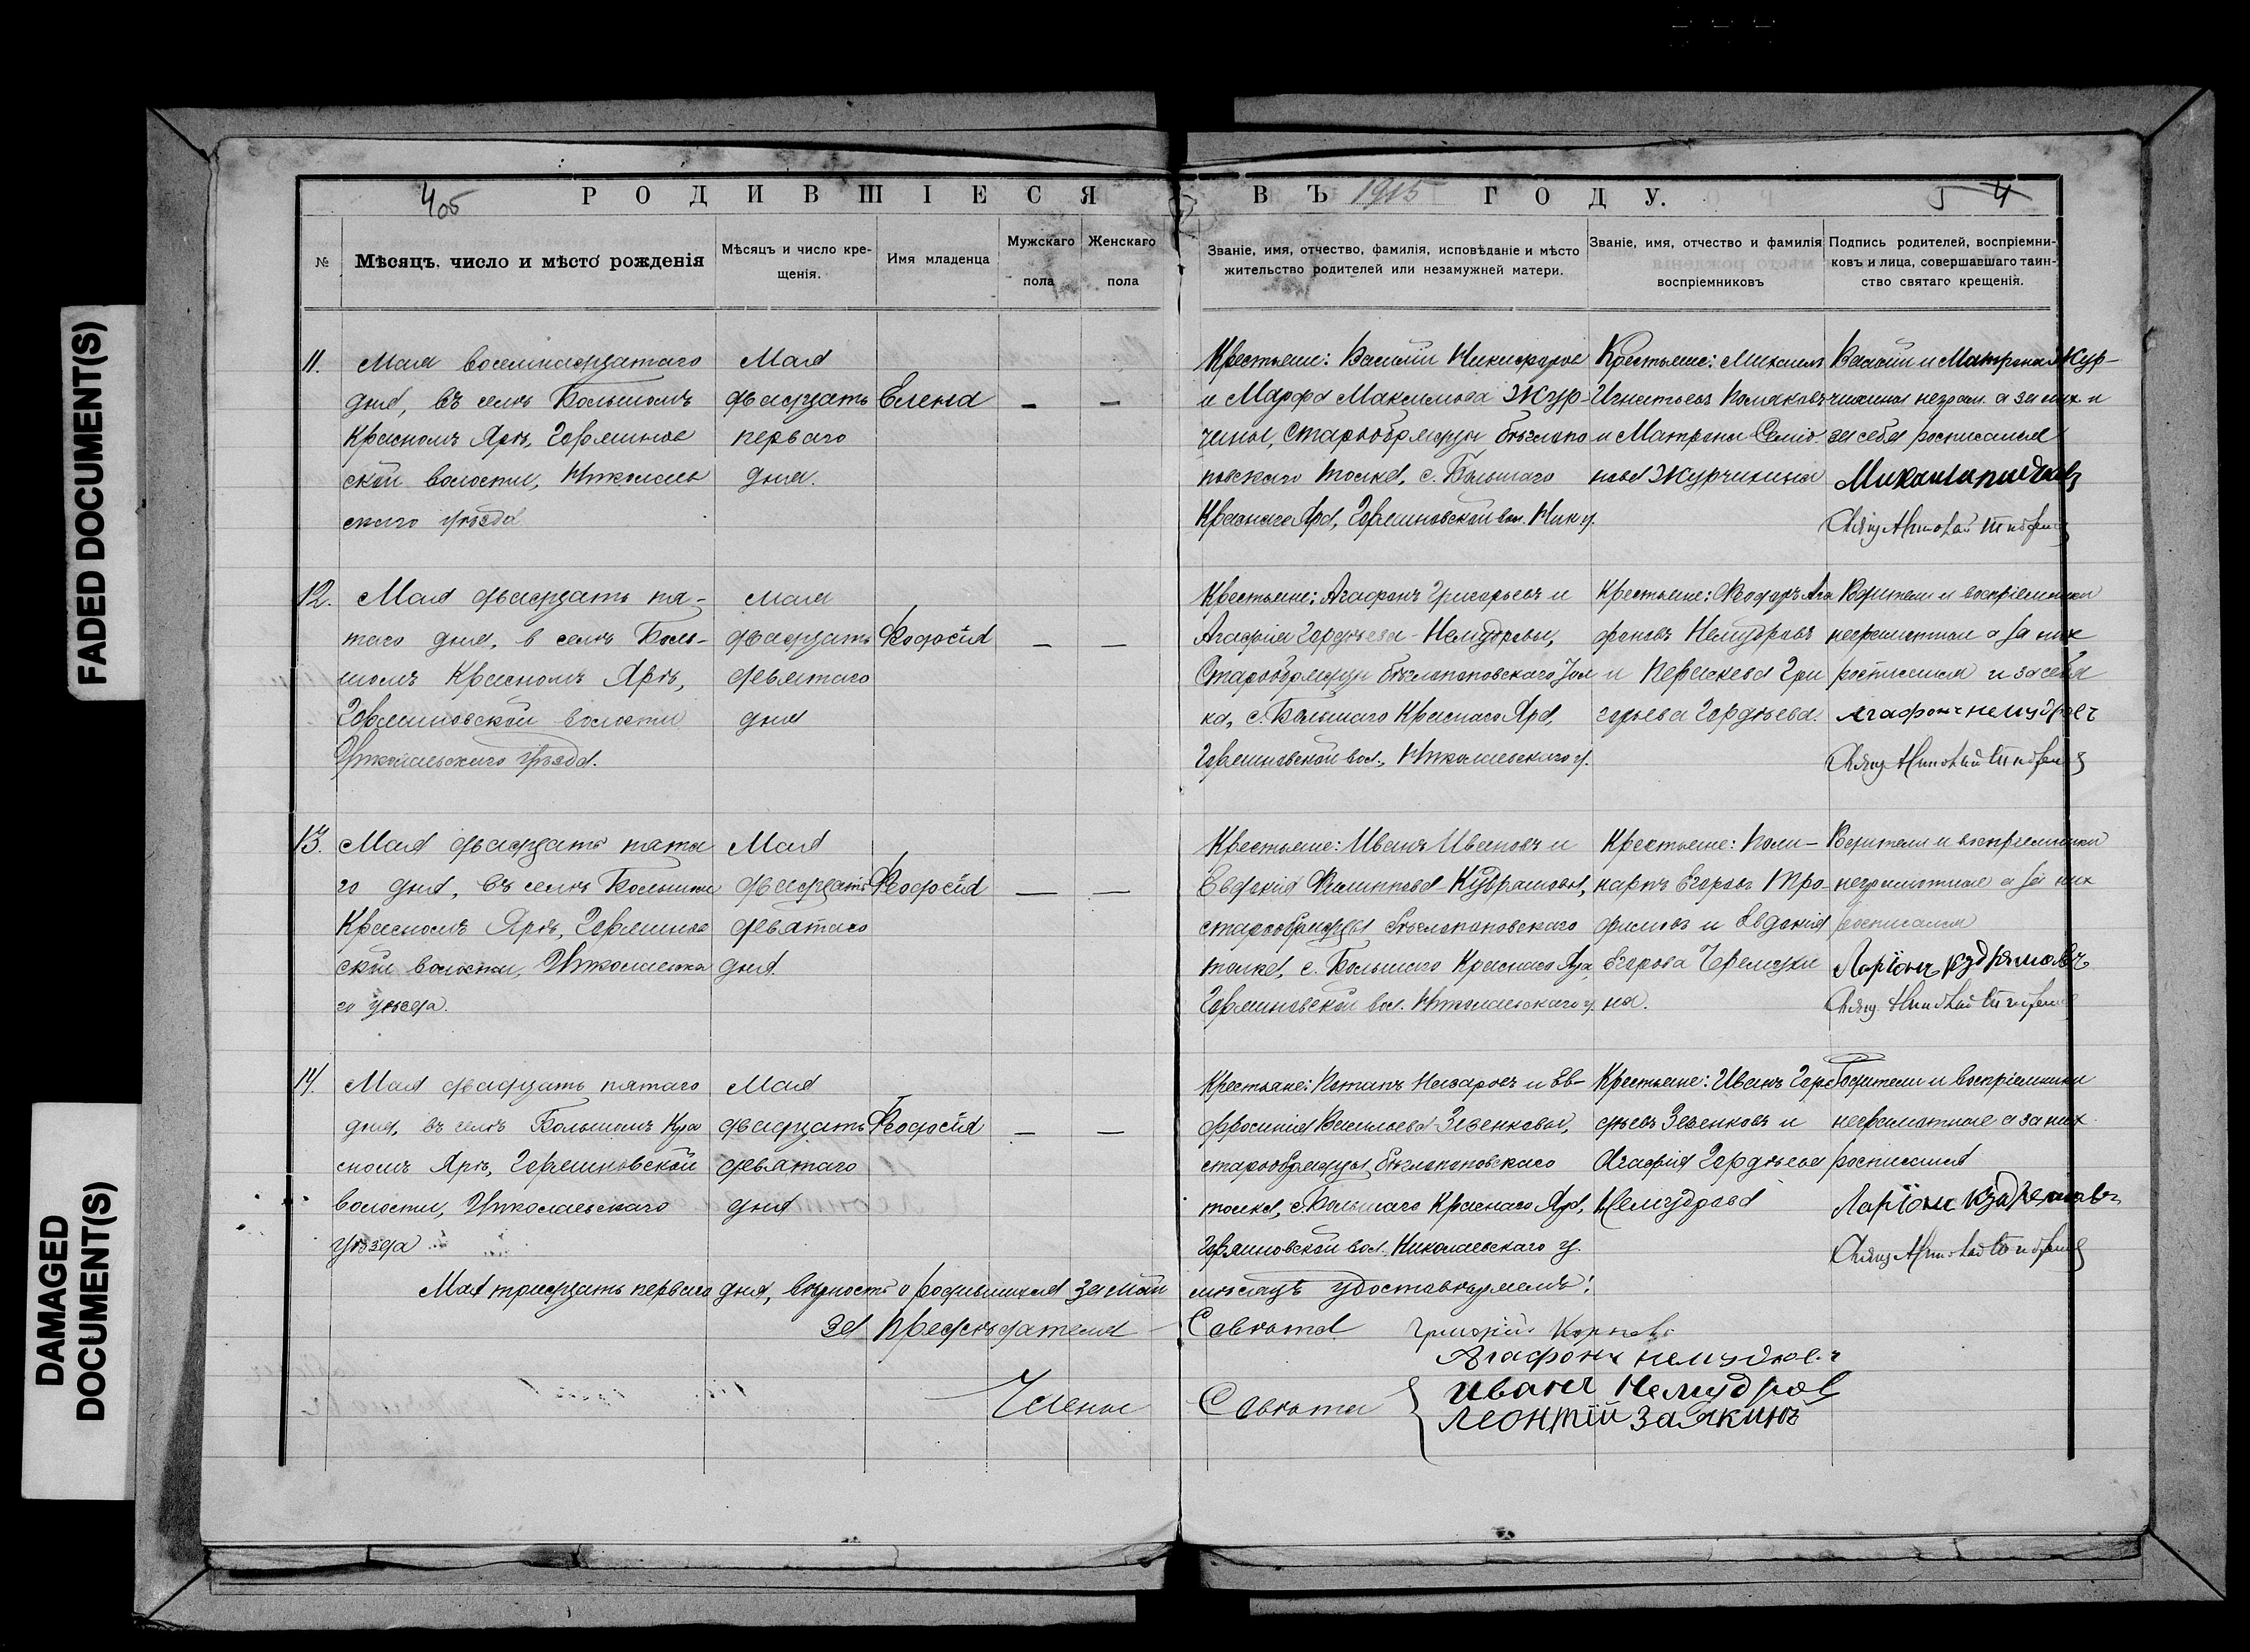 FADED DOCUMENT(S)
DAMAGED
DOCUMENT(S)
РОДИВШІЕСЯ ВЪ 1915 ГОДУ.
№
Мѣсяцъ, число и мѣсто рожденія
Мѣсяцъ и число кре-
щенія.
Имя младенца
Мужскаго
пола
Женскаго
пола
Званіе, имя, отчество, фамилія, исповѣданіе и мѣсто
жительство родителей или незамужней матери.
Званіе, имя, отчество и фамилія
воспріемниковъ
Подпись родителей, воспріемни-
ковъ и лица, совершавшаго таин-
ство святаго крещенія.
11.
Мая восемнадцатаго
дня, въ селѣ Большомъ
Красномъ Ярѣ,
ской волости, Николаев
скаго уѣзда
Мая
двадцать
перваго
дня.
Елена
Крестьяне: Василій Никифоров
и Марфа Максимова Жур-
чины, старообрядцы бѣглопо
повскаго толка, с. Большаго
Краснаго Яра, вол. Ник у.
Крестьяне: Михаилъ
Игнатьевъ
и Матрона Семіо
нова Журчихина
Василій и Матрона Жур-
а за них и
за себя росписался
12.
Мая двадцать пя-
таго дня, в селѣ Боль-
шомъ Красномъ Ярѣ,
волости
Николаевскаго уѣзда.
мая
двадцать
девятаго
дня
Феодосій
Крестьяне: Агафонъ Григорьевъ и
Агафія Гордѣева Немудровы,
Старообрядцы бѣглопоповскаго тол
ка, с. Большаго Краснаго Яра,
вол., Николаевскаго у.
Крестьяне: Феодоръ Ага
фоновъ Немудровъ
и Параскева Гри
горьева Гордѣева.
Родители и воспріемники
неграмотные а за них
росписался и за себя
Агафонъ немудров
13.
Мая двадцать пята
го дня, въ селѣ Большом
Красномъ Ярѣ,
ской волости, Николаевска
го уѣзда.
Мая
двадцать
девятаго
дня.
Феодосій
Крестьяне: Иванъ Ивановъ и
Евдокія Филиппова Кудряшовы,
старообрядцы бѣглопоповскаго
толка, с. Большаго Краснаго Яра,
вол. Николаевскаго у.
Крестьяне: Поли-
карпъ Егоровъ Тро-
фимовъ и Евдокія
Егорова
на.
Родители и воспріемники
неграмотные а за них
росписался
Ларіонъ кудряшовъ
14.
Мая двадцать пятаго
дня, въ селѣ Большомъ Кра
сномъ Ярѣ,
волости, Николаевскаго
уѣзда
Мая
двадцать
девятаго
дня
Феодосій
Крестьяне: Потапъ Назаров и Ев-
фросинія Васильева Зевенковы,
старообрядцы бѣглопоповскаго
толка, с. Большаго Краснаго Яра,
вол. Николаевскаго у.
Крестьяне: Иванъ Горд
ѣевъ Зевенковъ и
Агафія Гордѣева
Немудрова
Родители и воспріемники
неграмотные а за них
росписался
Ларіонъ кудряшовъ
Мая тридцать перваго дня, вѣрность о родившихся за май мѣсяцъ удостовѣряемъ:
За Предсѣдателя Совѣта
Агафонъ немудров
Члены Совѣта
Иванъ Немудров
Леонтій Заякинъ